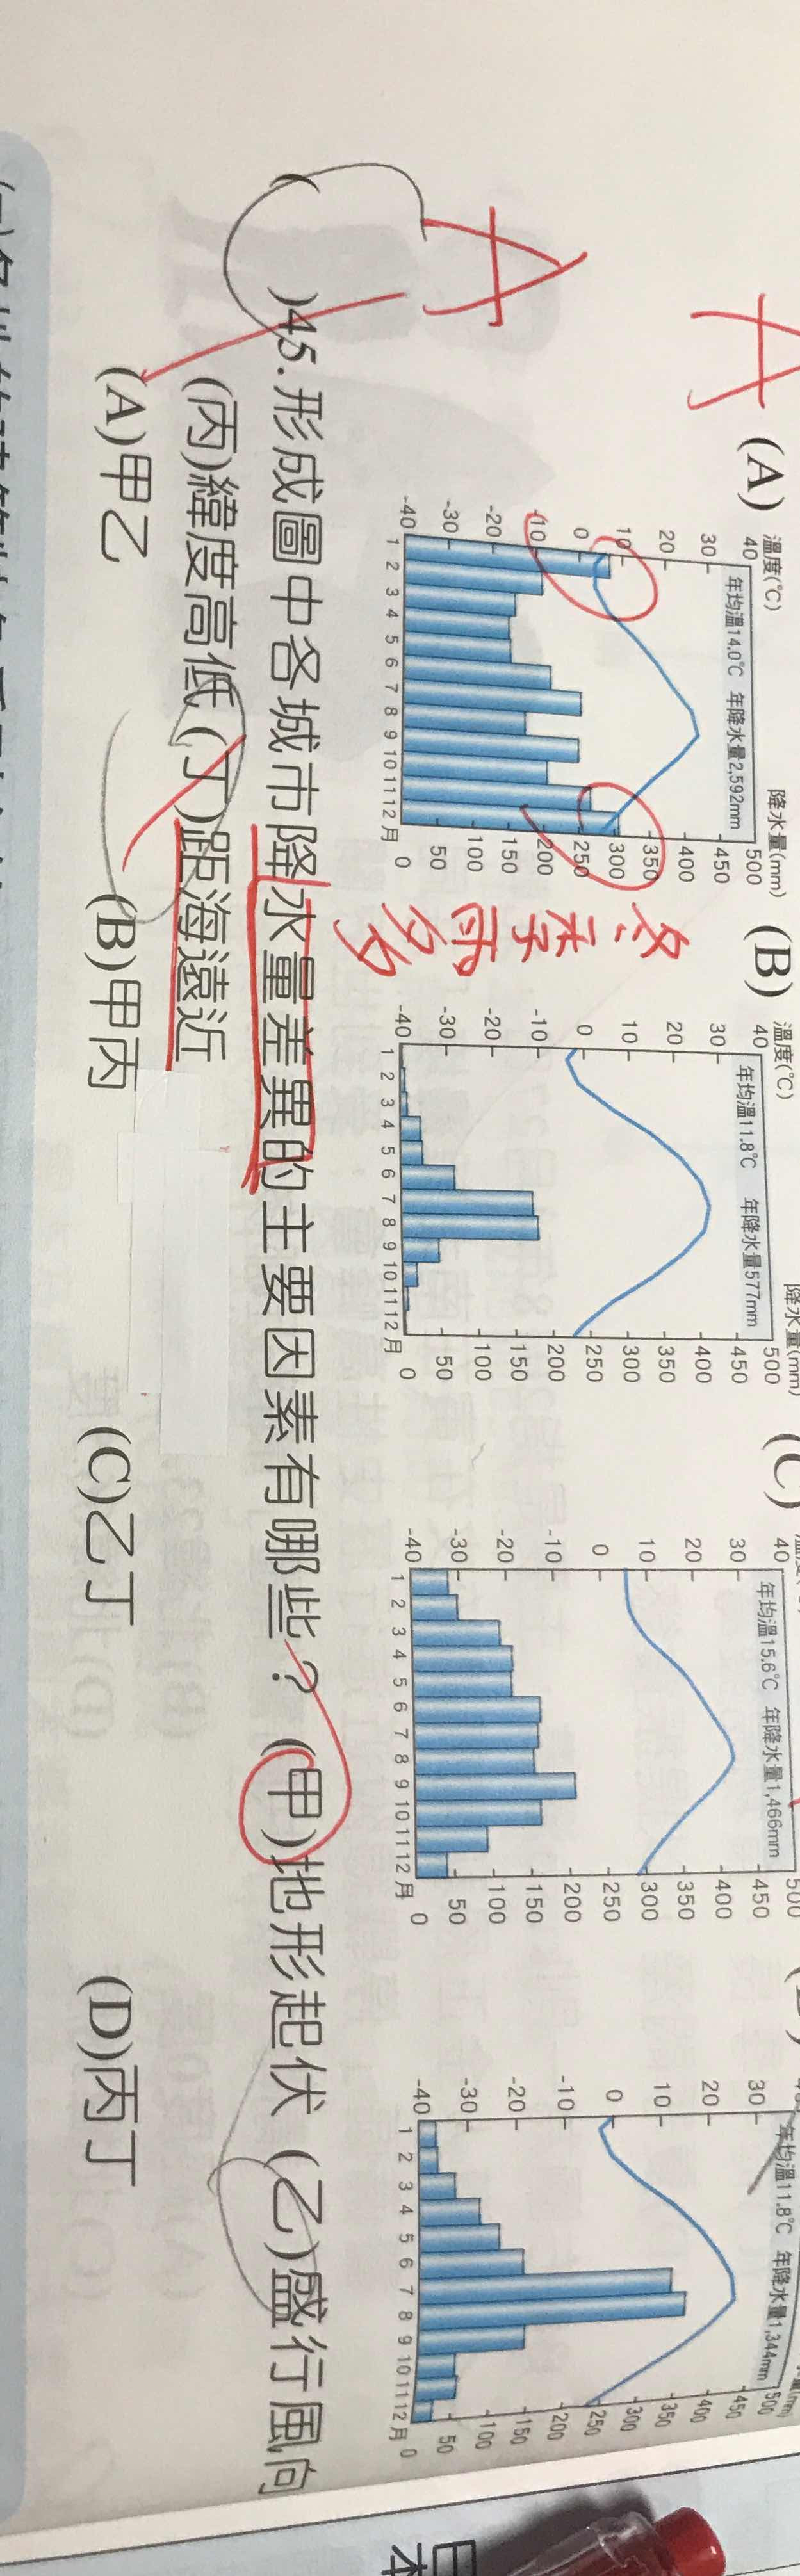 A
(A)
溫度(℃)
降水量(mm)
40 年均溫14.0℃ 年降水量2,592mm 500
30 450
20 400
10 350
0 300
-10 250
-20 200
-30 150
-40 100
50
0
1 2 3 4 5 6 7 8 9 10 11 12月
(B)
溫度(℃)
降水量(mm)
40 年均溫11.8℃ 年降水量577mm 500
30 450
20 400
10 350
0 300
-10 250
-20 200
-30 150
-40 100
50
0
1 2 3 4 5 6 7 8 9 10 11 12月
(C)
40 年均溫15.6℃ 年降水量1,466mm 500
30 450
20 400
10 350
0 300
-10 250
-20 200
-30 150
-40 100
50
0
1 2 3 4 5 6 7 8 9 10 11 12月
年均溫11.8℃ 年降水量1,344mm 500
30 450
20 400
10 350
0 300
-10 250
-20 200
-30 150
-40 100
50
0
1 2 3 4 5 6 7 8 9 10 11 12月
冬季雨多
A
( )45.形成圖中各城市降水量差異的主要因素有哪些？ (甲)地形起伏 (乙)盛行風向
(丙)緯度高低 (丁)距海遠近
(A)甲乙 (B)甲丙 (C)乙丁 (D)丙丁
日本